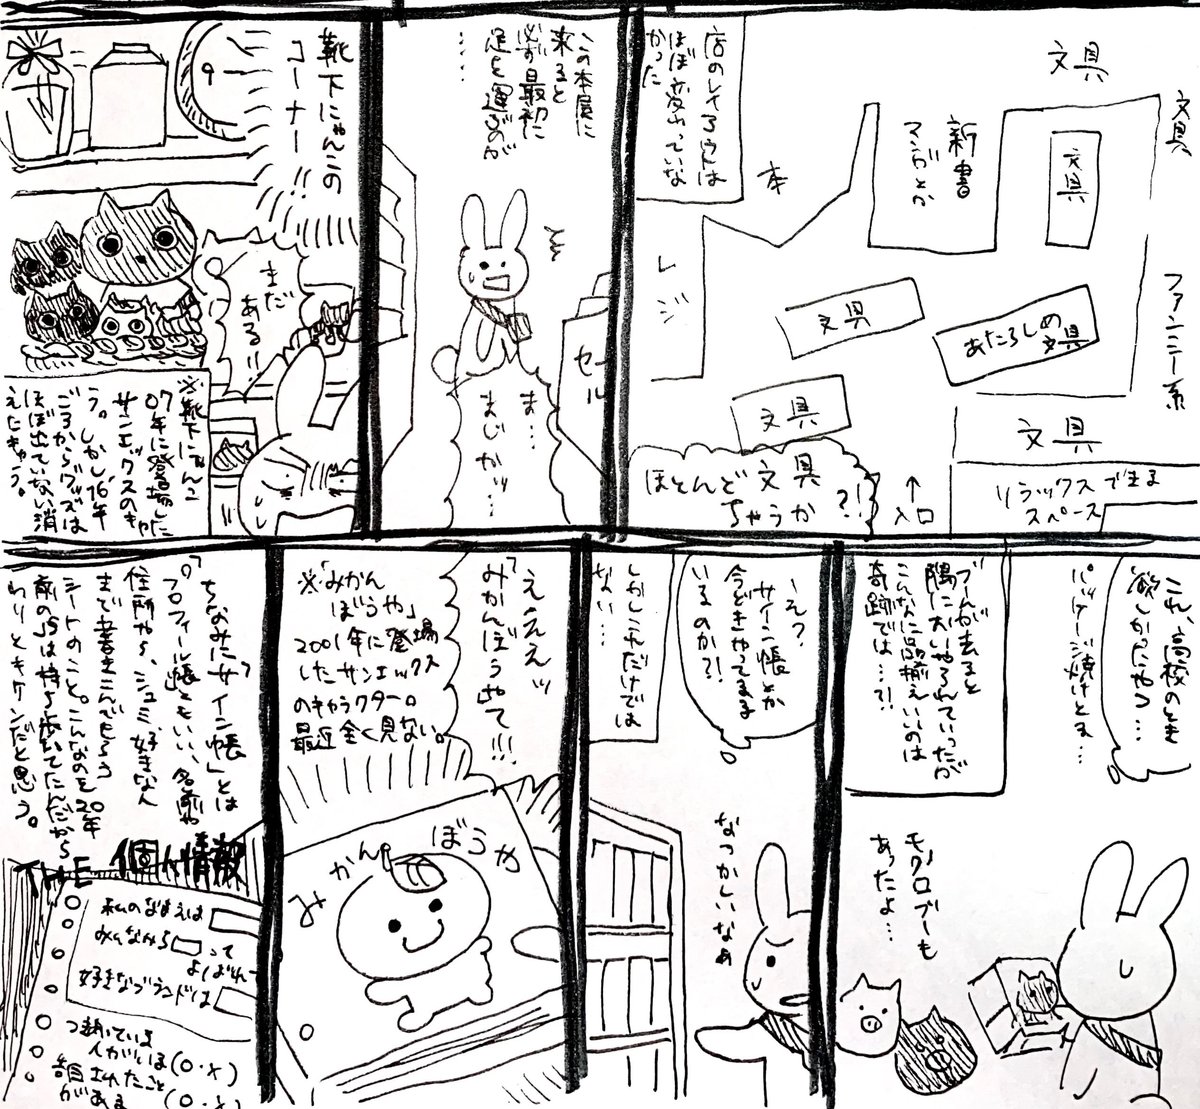 文具
文具
文具
新書
マンガとか
ファンシー系
本
店のレイアウトは
ほぼ変わっていな
かった
レジ
文具
あたらしめ
文具
文具
文具
リラックスできる
スペース
↑
入口
ほとんど文具
ちゃうか?!
この本屋に
来ると
必ず最初に
足を運ぶのが
……
セール
ま…
まじかッ…
靴下にゃんこの
コーナー!!
まだ
ある!!
※靴下にゃんこ
07年に登場した
サンエックスのキャ
ラ。しかし'16年
ごろからグッズは
ほぼ出ていない消
えたキャラ。
これ、高校のとき
欲しかったやつ…
パッケージ焼けとる…
ブームが去ると
隅においやられていったが
こんなに品揃えいいのは
奇跡では…?!
モノクロブーも
あったよ…
え?
サイン帳とか
今どきやってる
いるのか?!
しかしこれだけでは
ない…
なつかしいなぁ
ええええッ
「みかんぼうや」て!!!
※「みかん
ぼうや」
2001年に登場
したサンエックス
のキャラクター。
最近全く見ない。
みかんぼうや
ちなみに「サイン帳」とは
「プロフィール帳」ともいい、名前や
住所や、シュミ、好きな人
まで書きこんでもらう
シートのこと。こんなのを20年
前のJSは持ち歩いてたんだから
わりとキケンだと思う。
THE 個人情報
私のなまえは
みんなから って
よばれ
好きなブランドは
つき合っている
人がいる(○・×)
告白されたこと
がある(○・×)